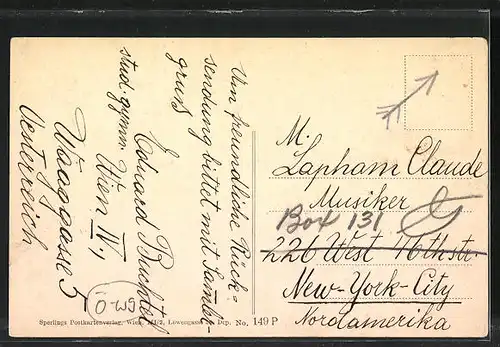 Um freundliche Rück-
sendung bittet mit Samml-
gruß
Eduard Buchtel
stud. gymn. Wien IV.,
Waaggasse 5
Oesterreich
M.
Lapham Claude
Musiker
Box 131
226 West 46thstr.
New-York-City
Nordamerika
Sperlings Postkartenverlag, Wien, Löwengasse Dep. No. 149 P